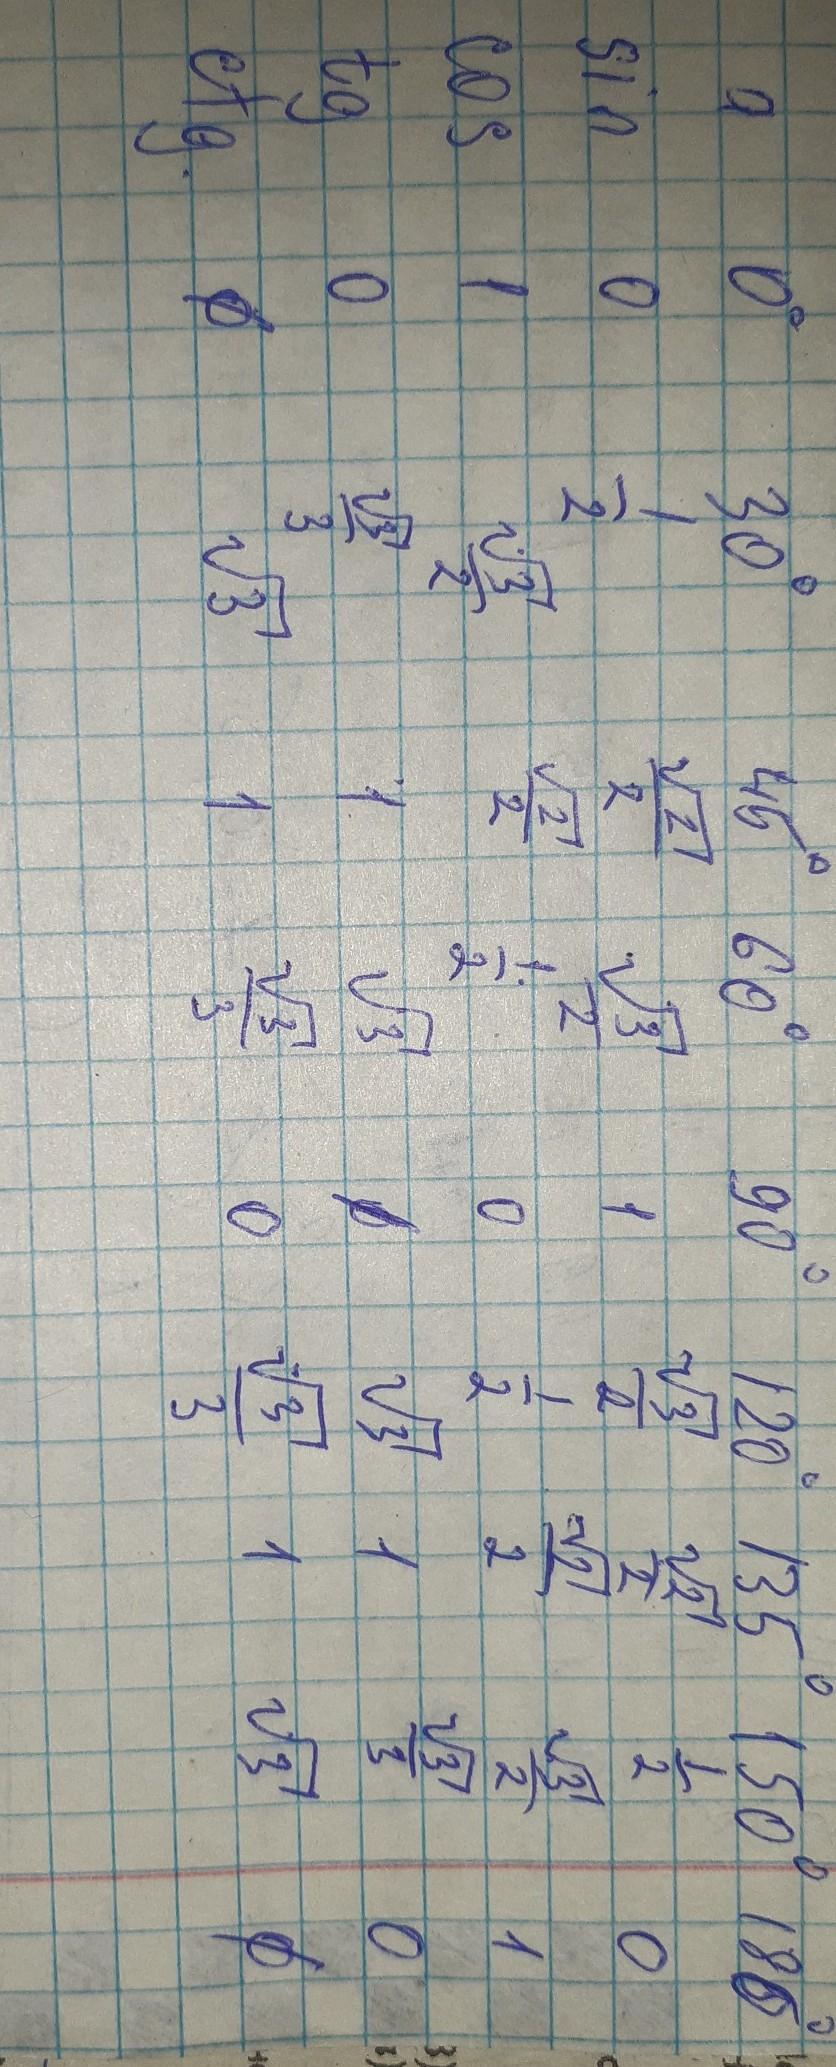 a 0° 30° 45° 60° 90° 120° 135° 150° 180°
sin 0 1/2 √2/2 √3/2 1 √3/2 √2/2 1/2 0
cos 1 √3/2 √2/2 1/2 0 1/2 √2/2 √3/2 1
tg 0 √3/3 1 √3 ∅ √3 1 √3/3 0
ctg. ∅ √3 1 √3/3 0 √3/3 1 √3 ∅